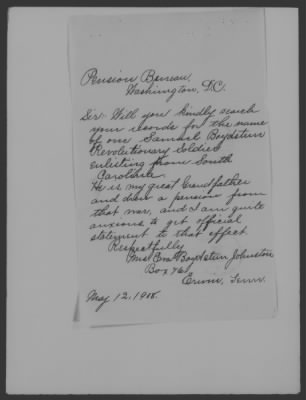 Pension Bureau,
Washington, D.C.
Sir: Will you kindly search
your records for the name
of one Samuel Boydstun
Revolutionary Soldier
enlisting from South
Carolina.
He is my great Grandfather
and drew a pension from
that war, and I am quite
anxious to get official
statement to that effect
Respectfully
Mrs Eva Boydstun Johnston
Box 76
Erwin, Tenn.
May 12, 1908.